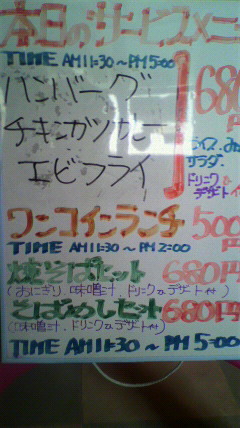 本日のサービスメニ
TIME AM11:30～PM5:00
ハンバーグ
チキンカツカレー
エビフライ
680円
ライス、みそ
サラダ、
ドリンク&
デザート
ワンコインランチ 500円
TIME AM11:30～PM2:00
焼そばセット 680円
(おにぎり、味噌汁、ドリンク&デザート付)
そばめしセット 680円
(味噌汁、ドリンク&デザート付)
TIME AM11:30～PM5:00